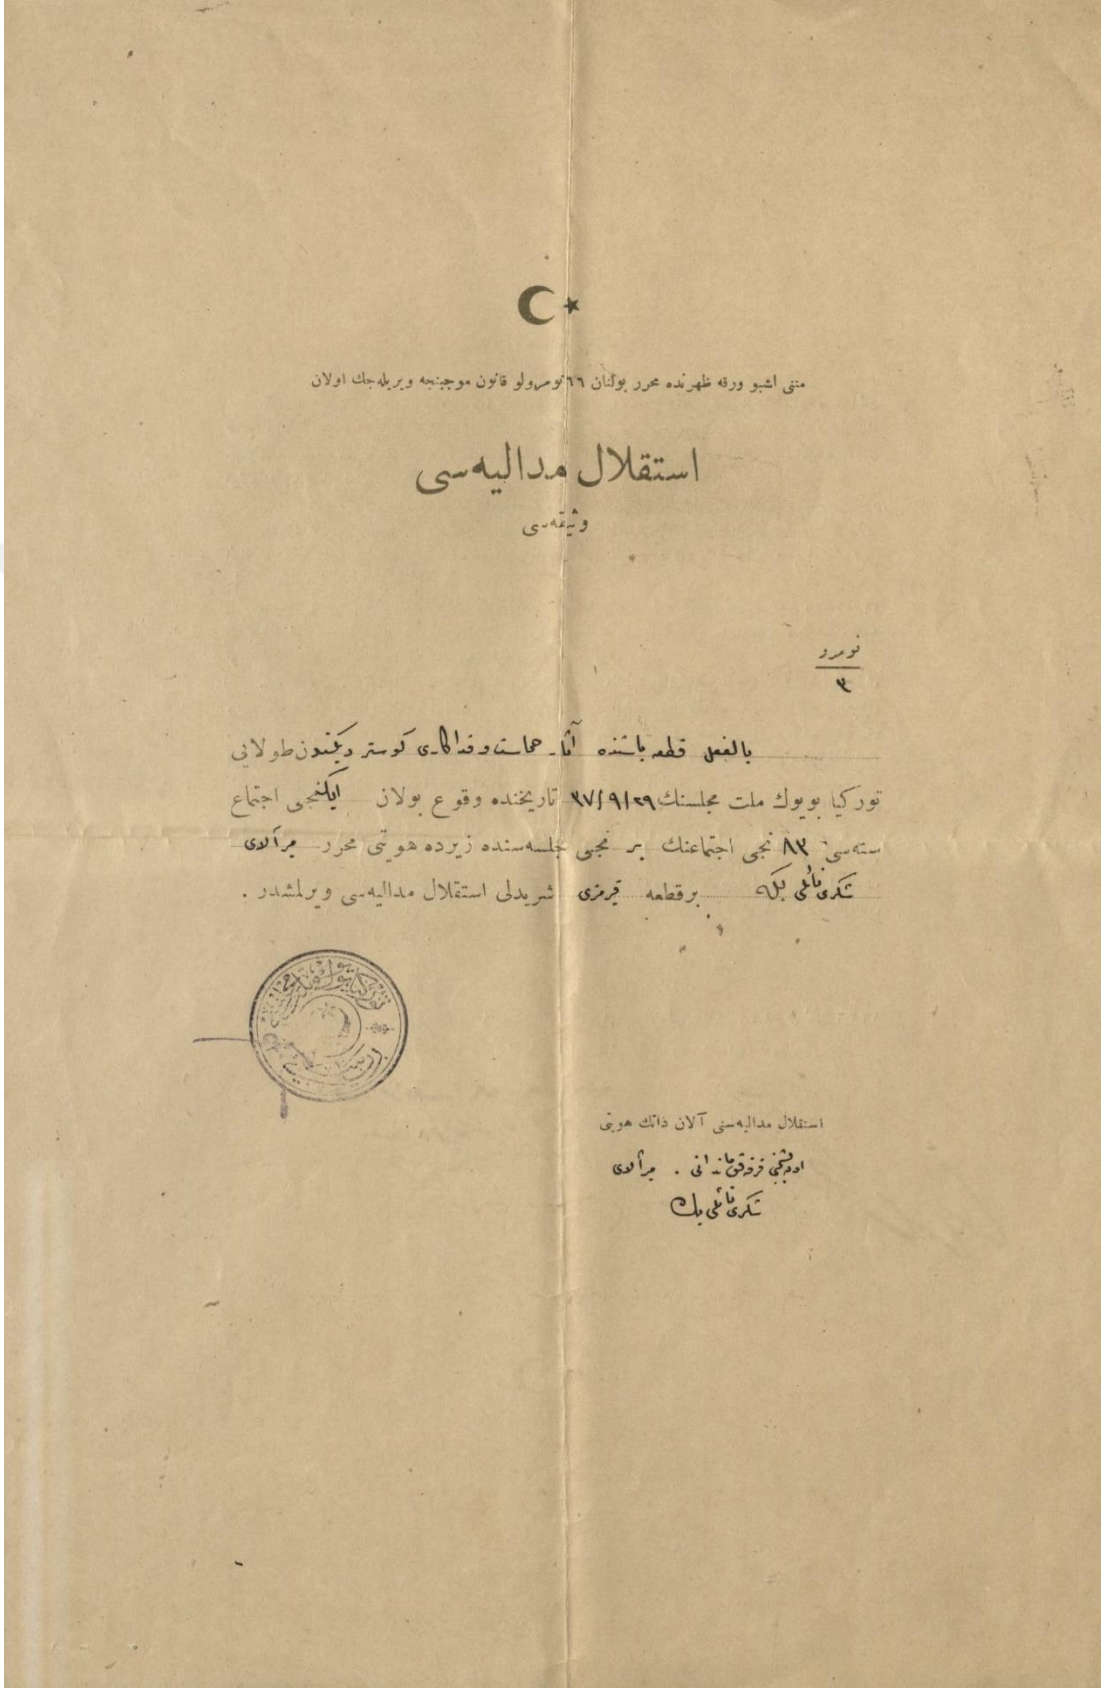 متنی اشبو ورقه ظهرنده محرر بولنان ٦٦ نومرولو قانون موجبنجه ویریله‌جك اولان
استقلال مدالیه‌سی
وثیقه‌سی
نومرو
٣
بالفعل قطعه باشنده آثار حماست و فداكاری كوستردیكندن طولایی
توركیا بویوك ملت مجلسنك ٣٧/٩/٢٩ تاریخنده وقوع بولان ایكنجی اجتماع
سنه‌سی ٨٣ نجی اجتماعنك بر نجی جلسه‌سنده زیرده هویتی محرر میرآلای
شكری نائلی بكه برقطعه قیرمزی شریدلی استقلال مدالیه‌سی ویرلمشدر .
توركیا بویوك ملت مجلسی
استقلال مدالیه‌سنی آلان ذاتك هویتی
اون بشنجی فرقه قوماندانی . میرآلای
شكری نائلی بك